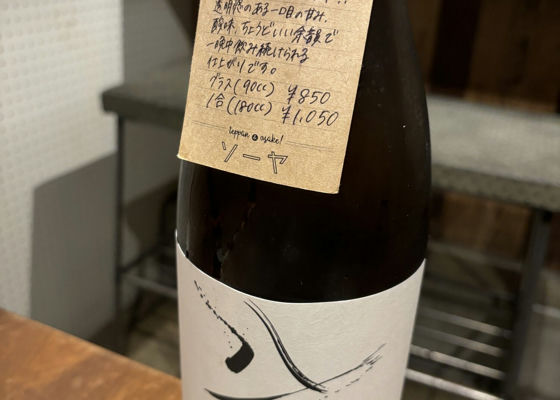 透明感のある一口目の甘み、
酸味、ちょうどいい余韻で
一晩中飲み続けられる
仕上がりです。
グラス(90cc) ¥850
1合(180cc) ¥1,050
teppan & osake!
ソーヤ